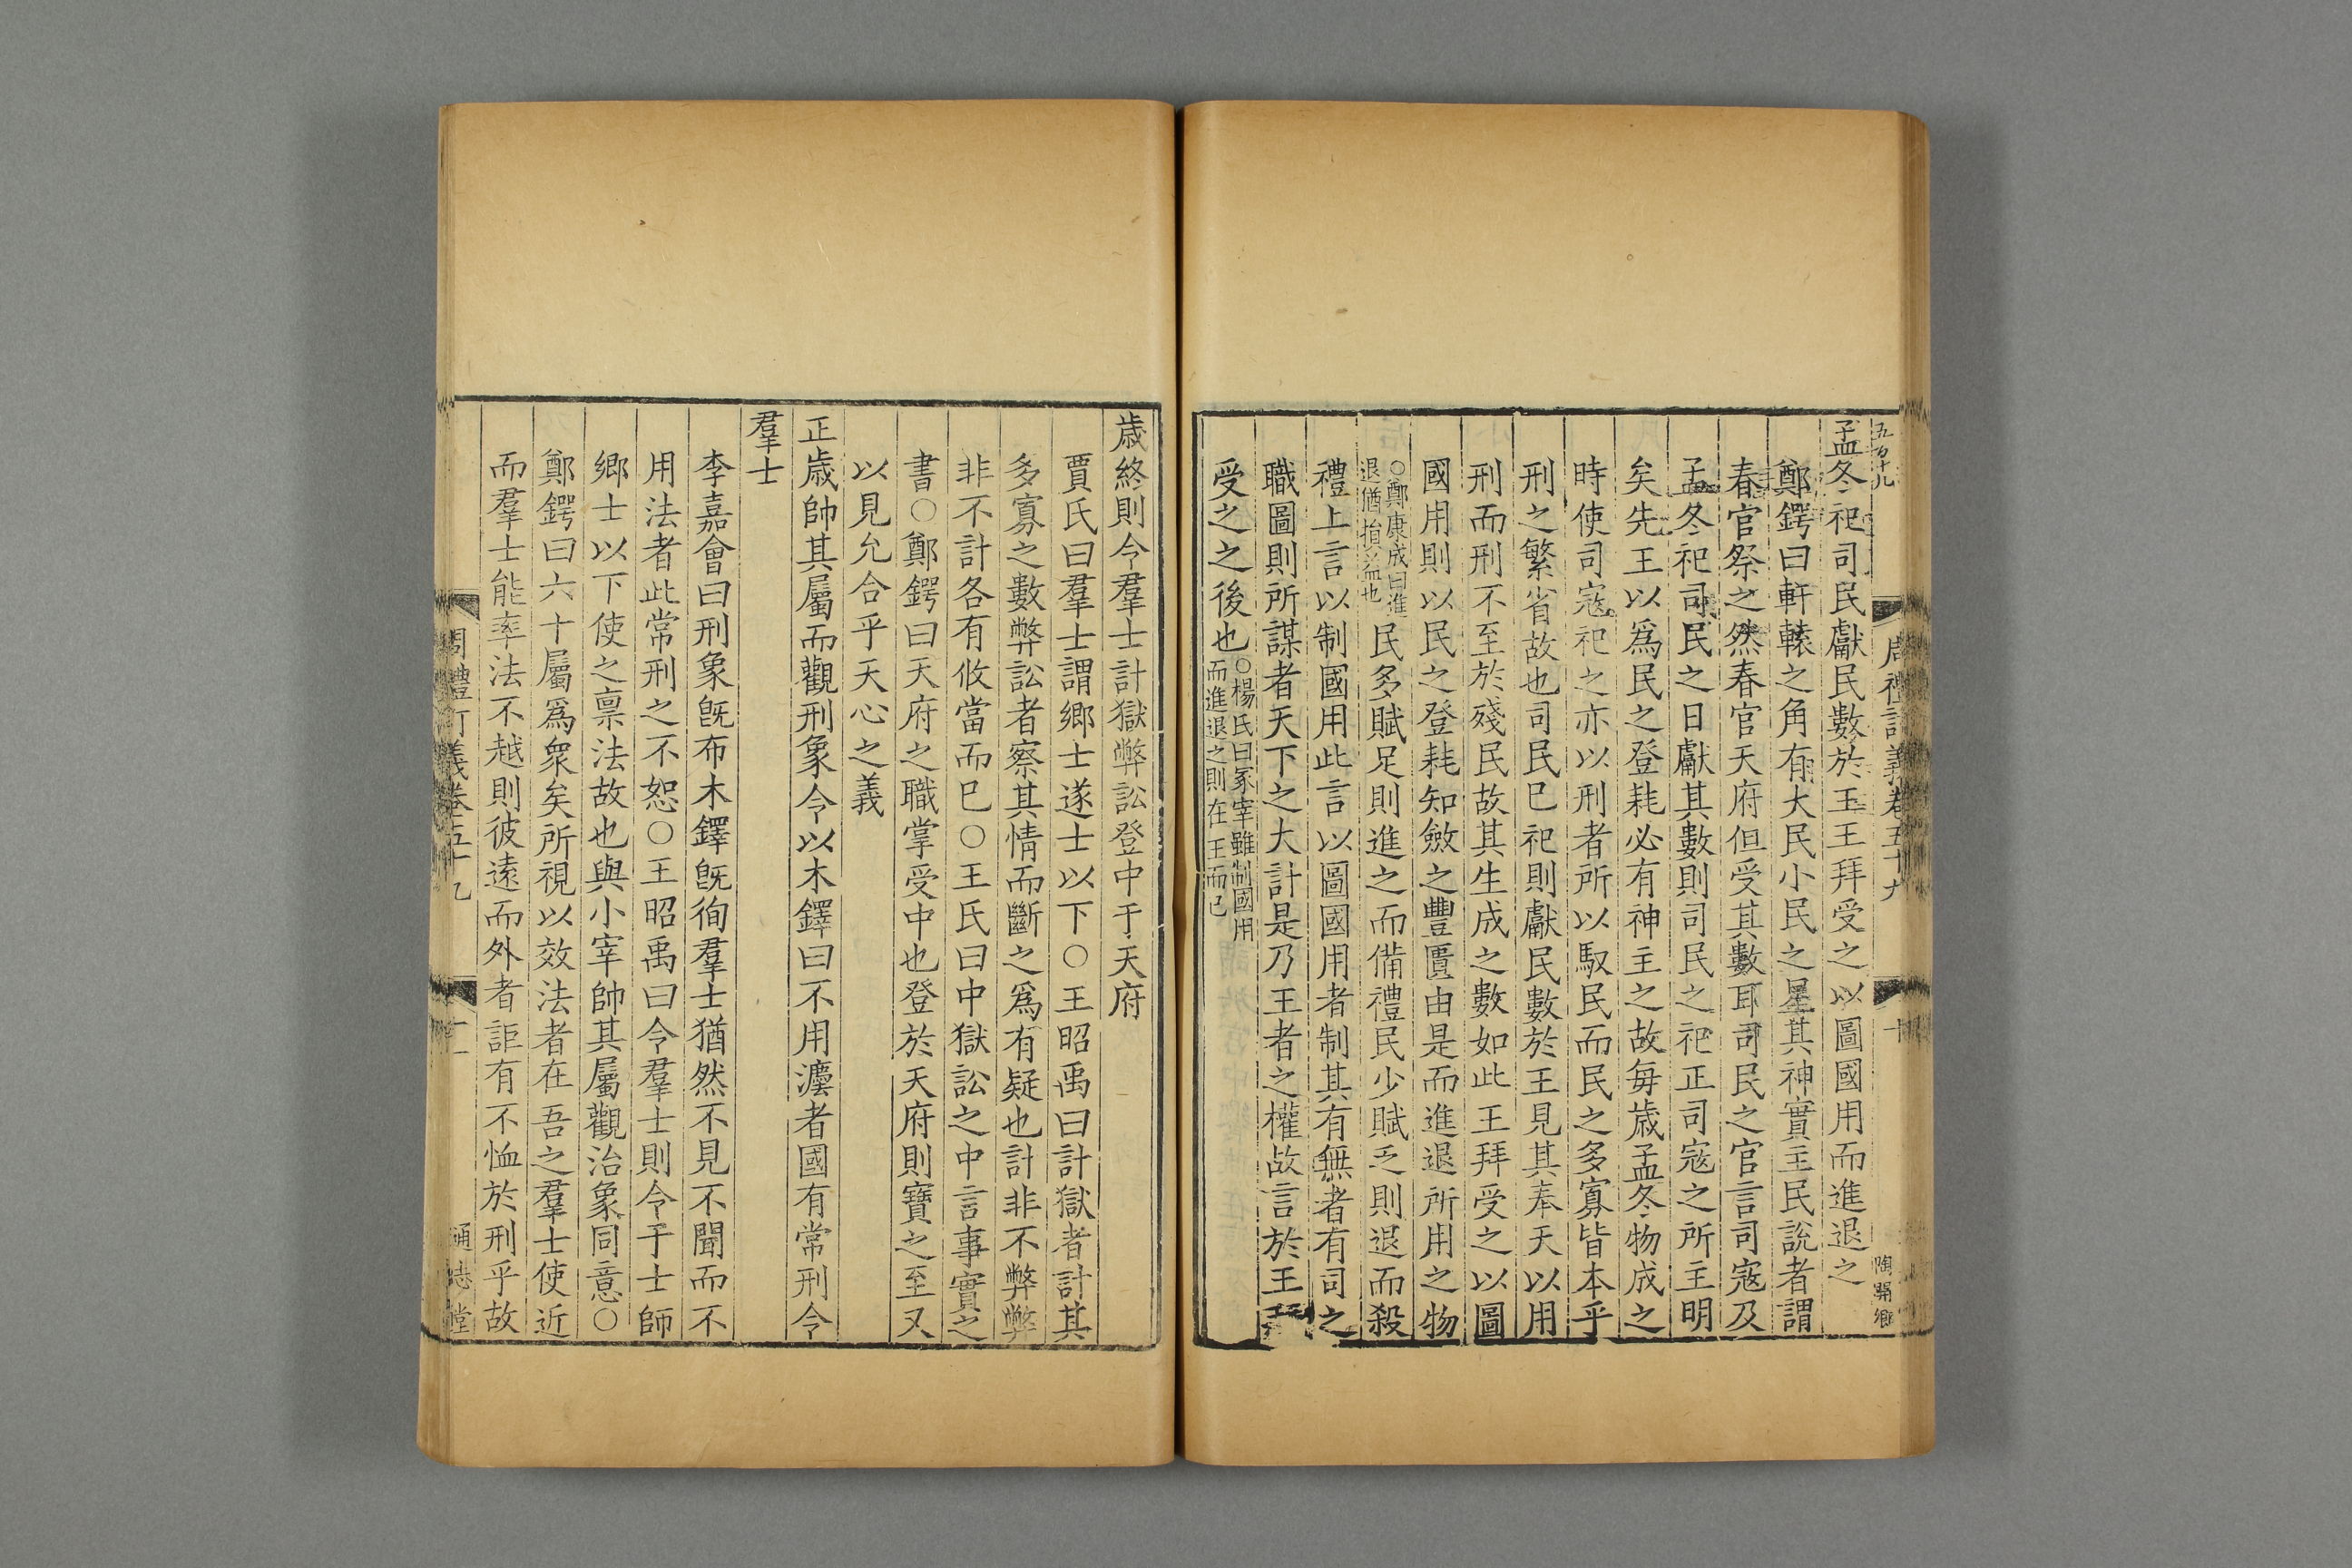 五百十九
周禮訂義卷五十九
十
陶開鄉
孟冬祀司民獻民數於王王拜受之以圖國用而進退之
鄭鍔曰軒轅之角有大民小民之星其神實主民說者謂
春官祭之然春官天府但受其數耳司民之官言司寇及
孟冬祀司民之日獻其數則司民之祀正司寇之所主明
矣先王以爲民之登耗必有神主之故毎歳孟冬物成之
時使司寇祀之亦以刑者所以馭民而民之多寡皆本乎
刑之繁省故也司民已祀則獻民數於王見其奉天以用
刑而刑不至於殘民故其生成之數如此王拜受之以圖
國用則以民之登耗知斂之豐匱由是而進退所用之物
○鄭康成曰進
退猶損益也
民多賦足則進之而備禮民少賦乏則退而殺
禮上言以制國用此言以圖國用者制其有無者有司之
職圖則所謀者天下之大計是乃王者之權故言於王
受之之後也
○楊氏曰冢宰雖制國用
而進退之則在王而已
歳終則令羣士計獄弊訟登中于天府
賈氏曰羣士謂鄉士遂士以下○王昭禹曰計獄者計其
多寡之數弊訟者察其情而斷之爲有疑也計非不弊弊
非不計各有攸當而已○王氏曰中獄訟之中言事實之
書○鄭鍔曰天府之職掌受中也登於天府則寶之至又
以見允合乎天心之義
正歳帥其屬而觀刑象令以木鐸曰不用灋者國有常刑令
羣士
李嘉會曰刑象旣布木鐸旣徇羣士猶然不見不聞而不
用法者此常刑之不恕○王昭禹曰令羣士則令于士師
鄉士以下使之禀法故也與小宰帥其屬觀治象同意○
鄭鍔曰六十屬爲衆矣所視以效法者在吾之羣士使近
而羣士能率法不越則彼遠而外者詎有不恤於刑乎故
周禮訂義卷五十九
十一
通志堂